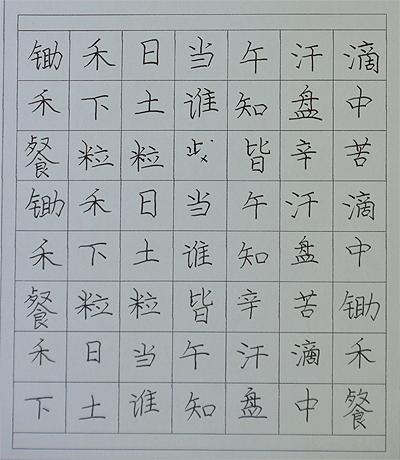 锄禾日当午汗滴
禾下土谁知盘中
餐粒粒皆辛苦
锄禾日当午汗滴
禾下土谁知盘中
餐粒粒皆辛苦锄
禾日当午汗滴禾
下土谁知盘中餐